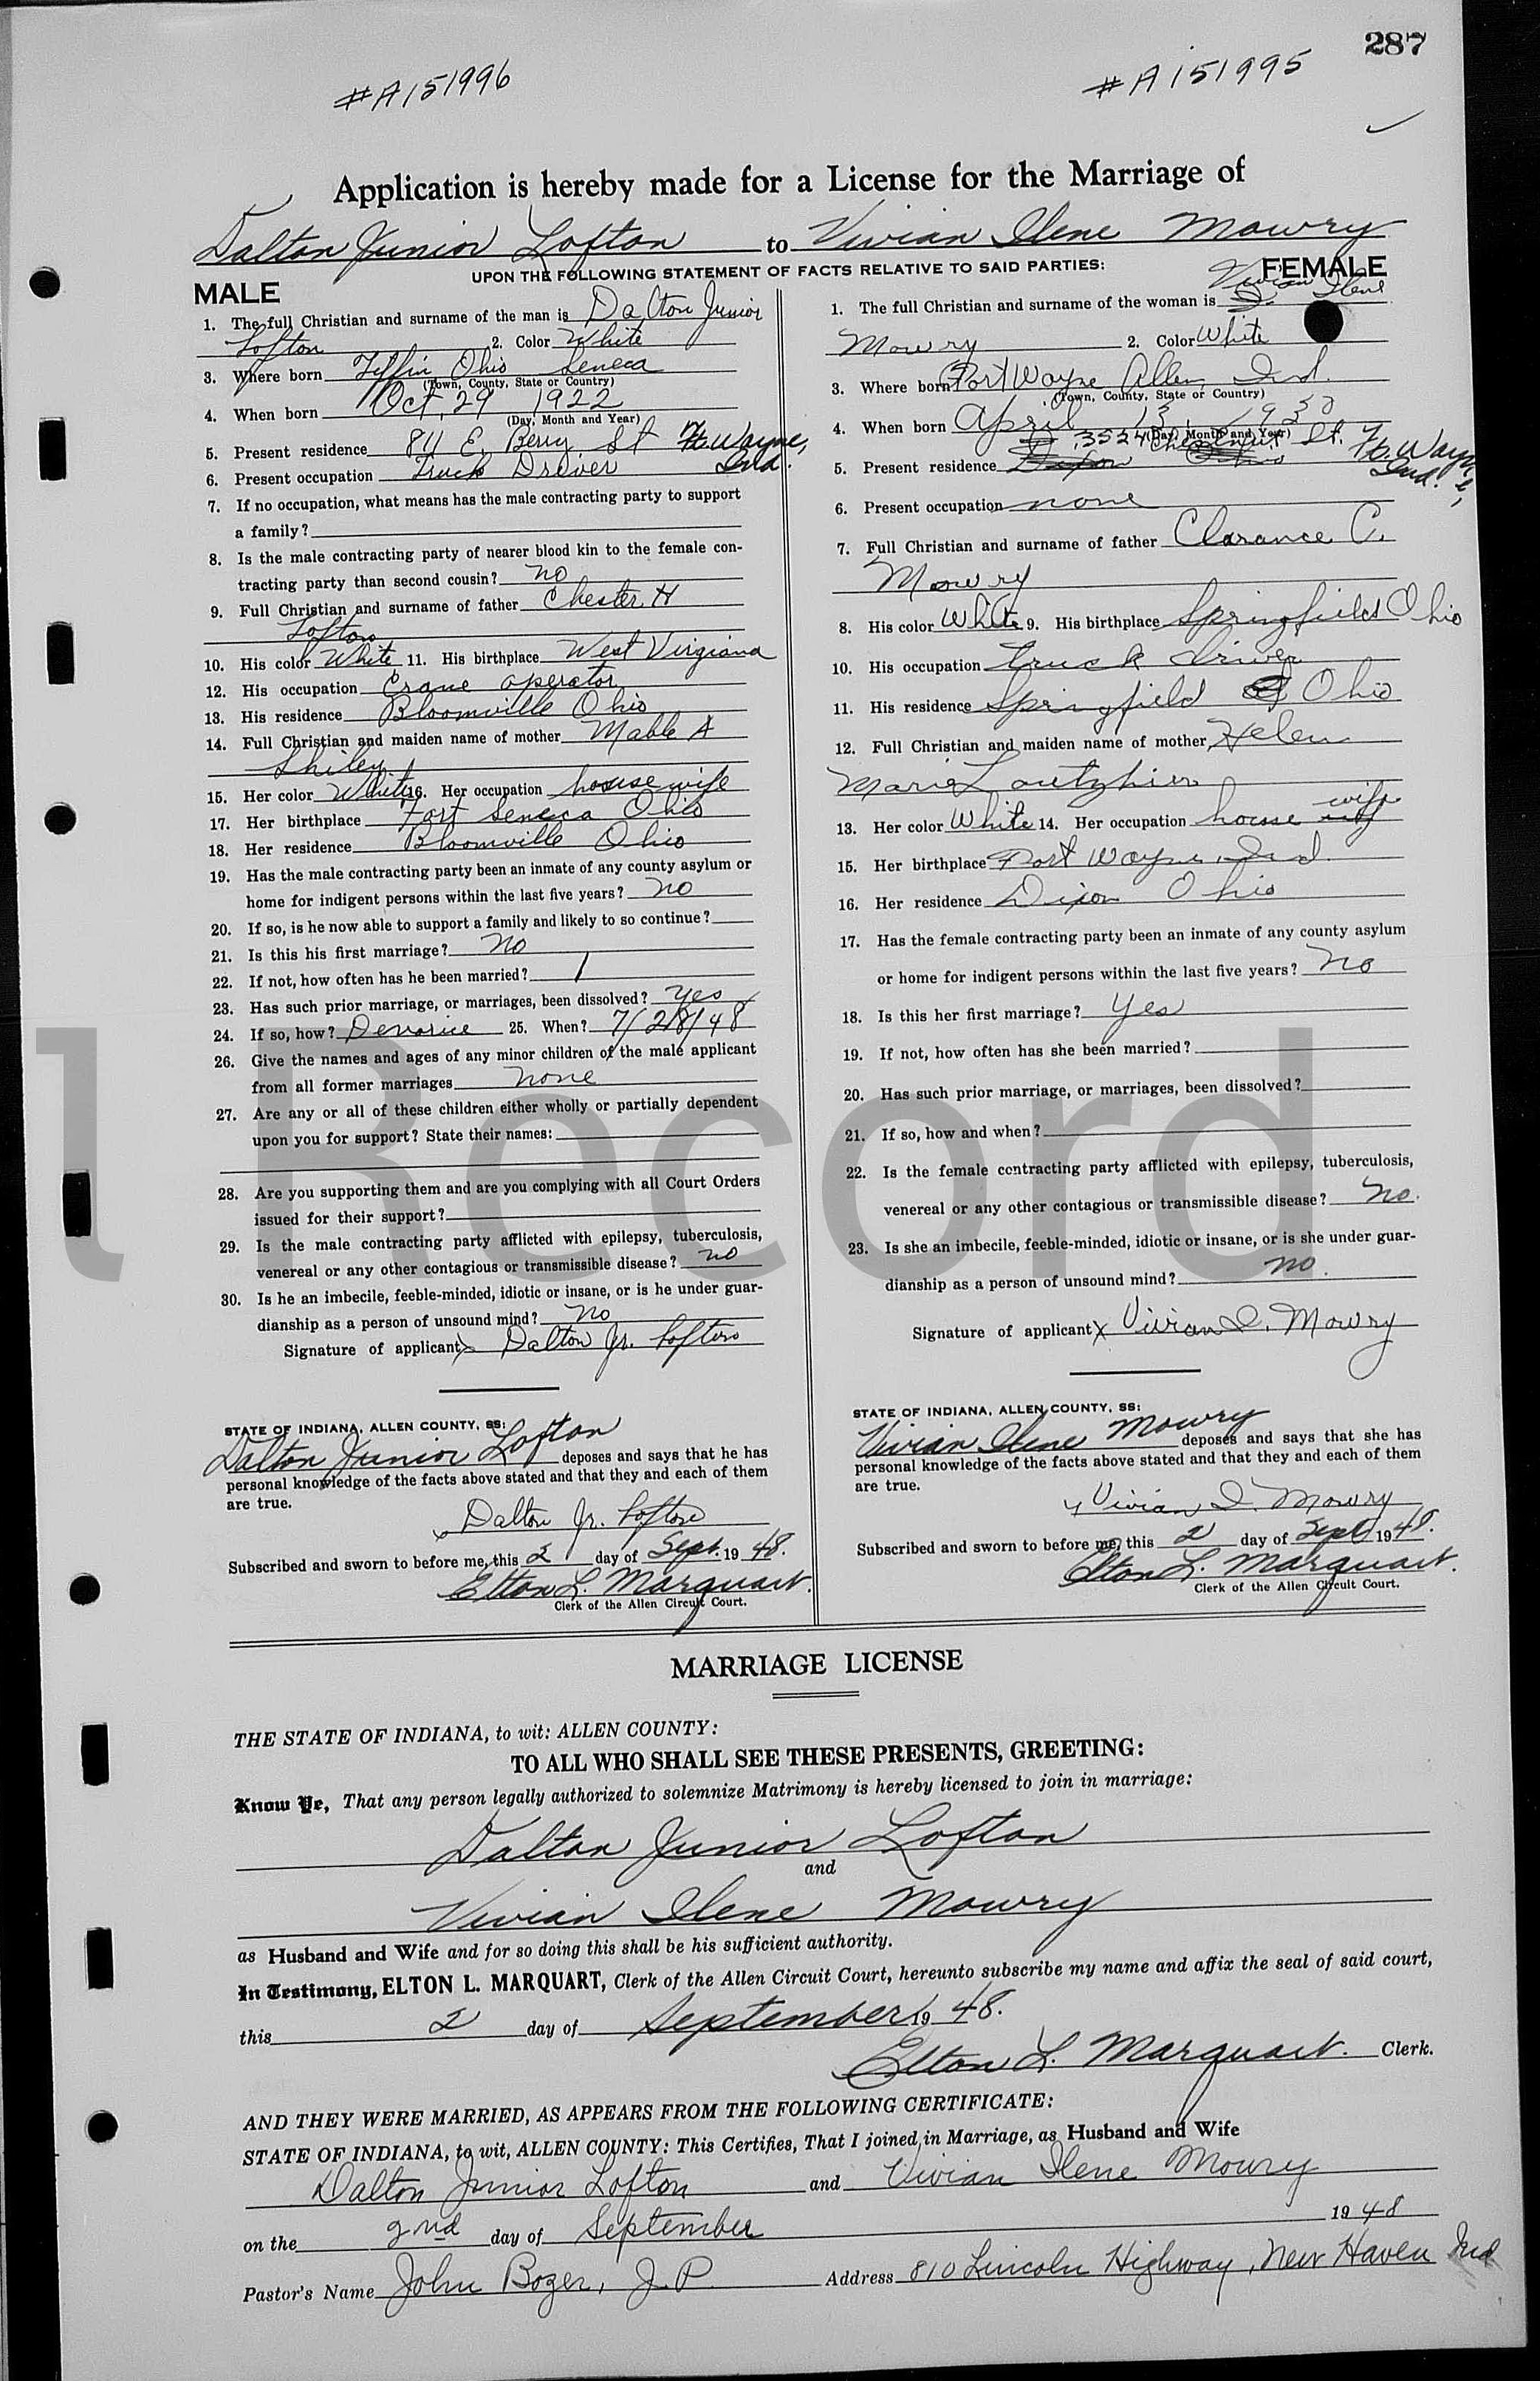 287
#A151996
#A151995
Application is hereby made for a License for the Marriage of
Dalton Junior Lofton to Vivian Ilene Mowry
UPON THE FOLLOWING STATEMENT OF FACTS RELATIVE TO SAID PARTIES:
MALE
1. The full Christian and surname of the man is Dalton Junior
Lofton 2. Color White
3. Where born Tiffin Ohio Seneca
(Town, County, State or Country)
4. When born Oct. 29 1922
(Day, Month and Year)
5. Present residence 811 E. Berry St Ft. Wayne,
Ind.
6. Present occupation Truck Driver
7. If no occupation, what means has the male contracting party to support
a family?
8. Is the male contracting party of nearer blood kin to the female con-
tracting party than second cousin? no
9. Full Christian and surname of father Chester H
Lofton
10. His color White 11. His birthplace West Virgiana
12. His occupation Crane operator
13. His residence Bloomville Ohio
14. Full Christian and maiden name of mother Mable A
Shiley
15. Her color White 16. Her occupation housewife
17. Her birthplace Fort Seneca Ohio
18. Her residence Bloomville Ohio
19. Has the male contracting party been an inmate of any county asylum or
home for indigent persons within the last five years? no
20. If so, is he now able to support a family and likely to so continue?
21. Is this his first marriage? no
22. If not, how often has he been married? 1
23. Has such prior marriage, or marriages, been dissolved? yes
24. If so, how? Devorice 25. When? 7/28/48
26. Give the names and ages of any minor children of the male applicant
from all former marriages none
27. Are any or all of these children either wholly or partially dependent
upon you for support? State their names:
28. Are you supporting them and are you complying with all Court Orders
issued for their support?
29. Is the male contracting party afflicted with epilepsy, tuberculosis,
venereal or any other contagious or transmissible disease? no
30. Is he an imbecile, feeble-minded, idiotic or insane, or is he under guar-
dianship as a person of unsound mind? No
Signature of applicant x Dalton Jr. Lofton
STATE OF INDIANA, ALLEN COUNTY, SS:
Dalton Junior Lofton deposes and says that he has
personal knowledge of the facts above stated and that they and each of them
are true.
x Dalton Jr. Lofton
Subscribed and sworn to before me, this 2 day of Sept. 19 48.
Elton L. Marquart.
Clerk of the Allen Circuit Court.
FEMALE
1. The full Christian and surname of the woman is Vivian Ilene
Mowry 2. Color White
3. Where born Fort Wayne Allen Ind.
(Town, County, State or Country)
4. When born April 13, 1930
(Day, Month and Year)
5. Present residence Dixon Ohio 3524 Chestnut St. Ft. Wayne,
Ind.
6. Present occupation none
7. Full Christian and surname of father Clarance C.
Mowry
8. His color White 9. His birthplace Springfield Ohio
10. His occupation truck driver
11. His residence Springfield Ohio
12. Full Christian and maiden name of mother Helen
Marie
13. Her color White 14. Her occupation house wife
15. Her birthplace Fort Wayne, Ind.
16. Her residence Dixon Ohio
17. Has the female contracting party been an inmate of any county asylum
or home for indigent persons within the last five years? no
18. Is this her first marriage? yes
19. If not, how often has she been married?
20. Has such prior marriage, or marriages, been dissolved?
21. If so, how and when?
22. Is the female contracting party afflicted with epilepsy, tuberculosis,
venereal or any other contagious or transmissible disease? no.
23. Is she an imbecile, feeble-minded, idiotic or insane, or is she under guar-
dianship as a person of unsound mind? no.
Signature of applicant x Vivian I. Mowry
STATE OF INDIANA, ALLEN COUNTY, SS:
Vivian Ilene Mowry deposes and says that she has
personal knowledge of the facts above stated and that they and each of them
are true.
x Vivian I. Mowry
Subscribed and sworn to before me, this 2 day of Sept 19 48.
Elton L. Marquart.
Clerk of the Allen Circuit Court.
l Record
MARRIAGE LICENSE
THE STATE OF INDIANA, to wit: ALLEN COUNTY:
TO ALL WHO SHALL SEE THESE PRESENTS, GREETING:
Know Ye, That any person legally authorized to solemnize Matrimony is hereby licensed to join in marriage:
Dalton Junior Lofton
and
Vivian Ilene Mowry
as Husband and Wife and for so doing this shall be his sufficient authority.
In Testimony, ELTON L. MARQUART, Clerk of the Allen Circuit Court, hereunto subscribe my name and affix the seal of said court,
this 2 day of September 19 48.
Elton L. Marquart. Clerk.
AND THEY WERE MARRIED, AS APPEARS FROM THE FOLLOWING CERTIFICATE:
STATE OF INDIANA, to wit, ALLEN COUNTY: This Certifies, That I joined in Marriage, as Husband and Wife
Dalton Junior Lofton and Vivian Ilene Mowry
on the 2nd day of September 19 48
Pastor's Name John Bozer, J.P. Address 810 Lincoln Highway, New Haven Ind